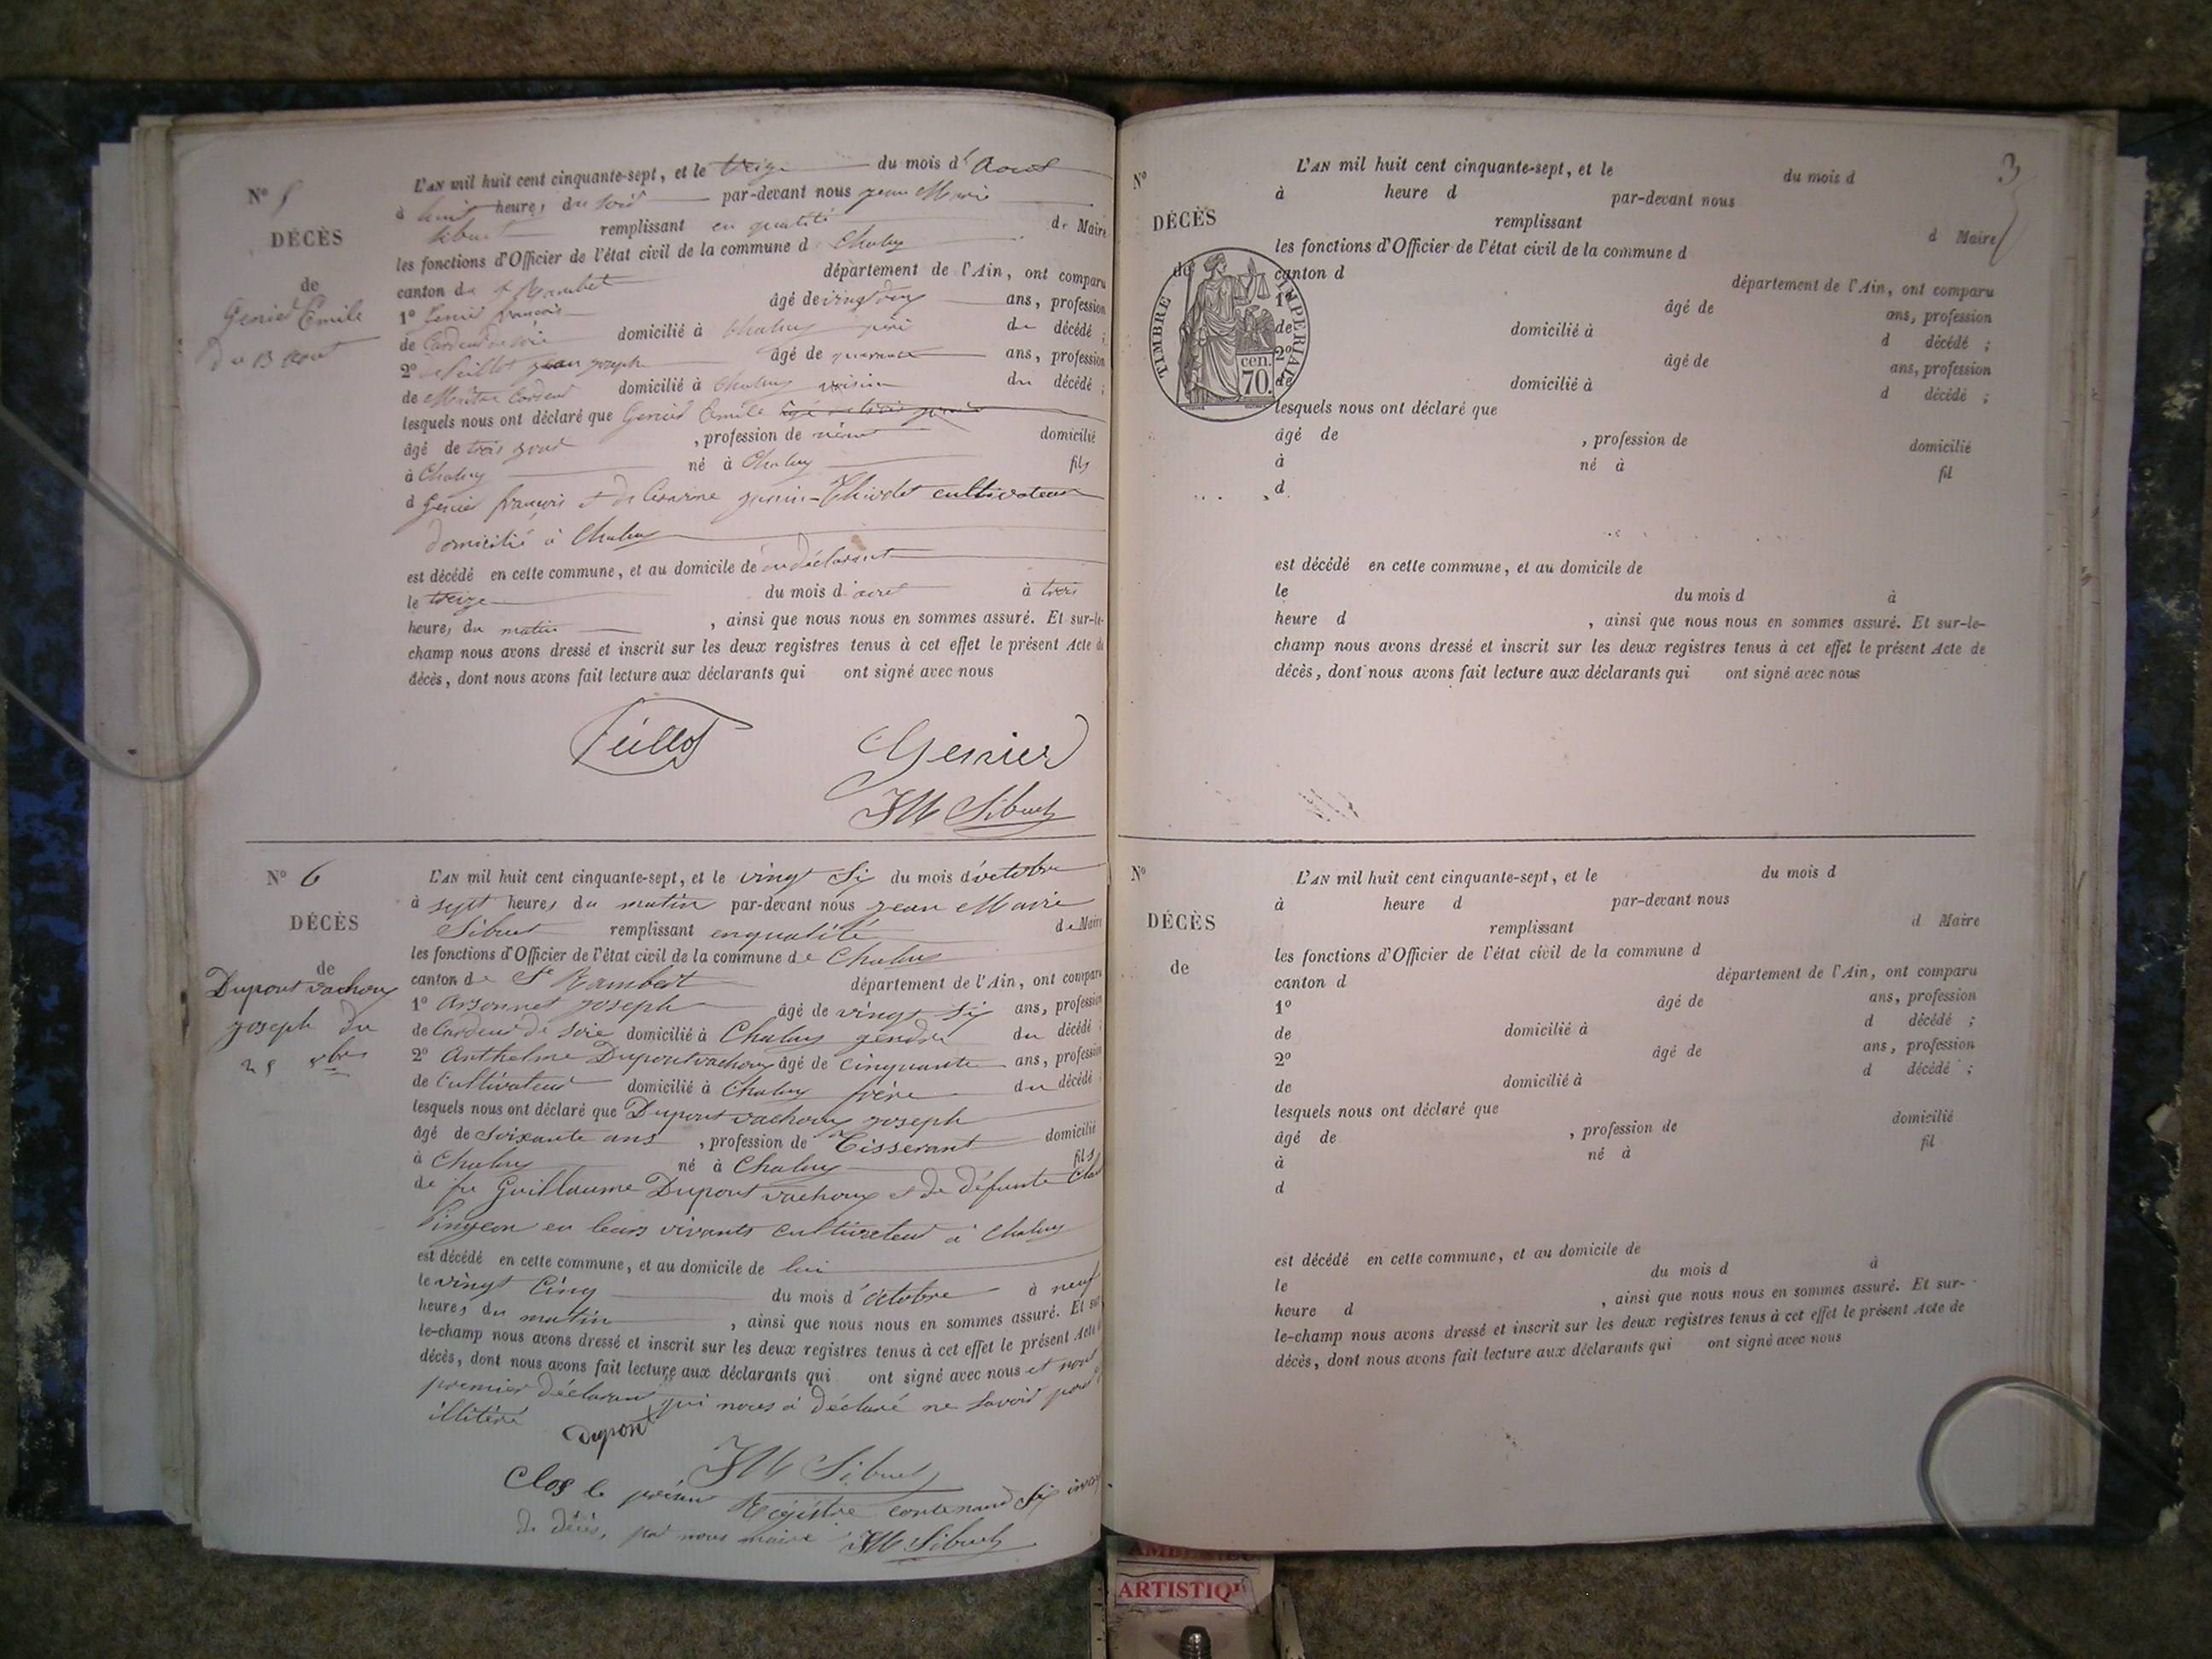 N° 5
DÉCÈS
de
Genier Emile
du 13 aout
L'AN mil huit cent cinquante-sept, et le treize du mois d'Aout
à huit heures du soir par-devant nous jean Marie
Sibuet remplissant en qualité de Maire
les fonctions d'Officier de l'état civil de la commune d Chaley
canton de St Rambert département de l'Ain, ont comparu
1° Genier françois âgé de vingt ans, profession
de Cardeur de soie domicilié à Chaley père du décédé ;
2° Feillot jean joseph âgé de quarante ans, profession
de Maitre Cardeur domicilié à Chaley voisin du décédé ;
lesquels nous ont déclaré que Genier Emile
âgé de trois jours , profession de néant domicilié
à Chaley né à Chaley fils
d Genier françois et de Cesarine cultivateur
domicilié à Chaley
est décédé en cette commune, et au domicile de du déclarant
le treize du mois d'aout à trois
heures du matin , ainsi que nous nous en sommes assuré. Et sur-le-
champ nous avons dressé et inscrit sur les deux registres tenus à cet effet le présent Acte de
décès, dont nous avons fait lecture aux déclarants qui ont signé avec nous
Feillot Genier
JM Sibuet
N° 6
DÉCÈS
de
Dupont vachoux
joseph du
25 8bre
L'AN mil huit cent cinquante-sept, et le vingt Six du mois d'octobre
à sept heures du matin par-devant nous jean Marie
Sibuet remplissant enqualité de Maire
les fonctions d'Officier de l'état civil de la commune de Chaley
canton de St Rambert département de l'Ain, ont comparu
1° Arsonnet joseph âgé de vingt Six ans, profession
de Cardeur de Soie domicilié à Chaley gendre du décédé ;
2° Anthelme Dupontvachoux âgé de cinquante ans, profession
de Cultivateur domicilié à Chaley frère du décédé
lesquels nous ont déclaré que Dupont vachoux joseph
âgé de soixante ans , profession de Tisserant domicilié
à Chaley né à Chaley fils
de fu Guillaume Dupont vachoux et de défunte
Pingeon en leurs vivants cultivateur à Chaley
est décédé en cette commune, et au domicile de lui
le vingt Cinq du mois d'octobre à neuf
heures du matin , ainsi que nous nous en sommes assuré. Et sur
le-champ nous avons dressé et inscrit sur les deux registres tenus à cet effet le présent Acte
décès, dont nous avons fait lecture aux déclarants qui ont signé avec nous et non
premier déclarant qui nous a déclaré ne Savoir pour
illitéré
Dupont
JM Sibuet
Clos le présent Régistre contenant Six
de décès, par nous maire JM Sibuet
3
N°
DÉCÈS
de
TIMBRE IMPERIAL
70 cen.
L'AN mil huit cent cinquante-sept, et le du mois d
à heure d par-devant nous
remplissant d Maire
les fonctions d'Officier de l'état civil de la commune d
canton d département de l'Ain, ont comparu
1° âgé de ans, profession
de domicilié à d décédé ;
2° âgé de ans, profession
de domicilié à d décédé ;
lesquels nous ont déclaré que
âgé de , profession de domicilié
à né à fil
d
est décédé en cette commune, et au domicile de
le du mois d à
heure d , ainsi que nous nous en sommes assuré. Et sur-le-
champ nous avons dressé et inscrit sur les deux registres tenus à cet effet le présent Acte de
décès, dont nous avons fait lecture aux déclarants qui ont signé avec nous
N°
DÉCÈS
de
L'AN mil huit cent cinquante-sept, et le du mois d
à heure d par-devant nous
remplissant d Maire
les fonctions d'Officier de l'état civil de la commune d
canton d département de l'Ain, ont comparu
1° âgé de ans, profession
de domicilié à d décédé ;
2° âgé de ans, profession
de domicilié à d décédé ;
lesquels nous ont déclaré que
âgé de , profession de domicilié
à né à fil
d
est décédé en cette commune, et au domicile de
le du mois d à
heure d , ainsi que nous nous en sommes assuré. Et sur-
le-champ nous avons dressé et inscrit sur les deux registres tenus à cet effet le présent Acte de
décès, dont nous avons fait lecture aux déclarants qui ont signé avec nous
ARTISTIQ